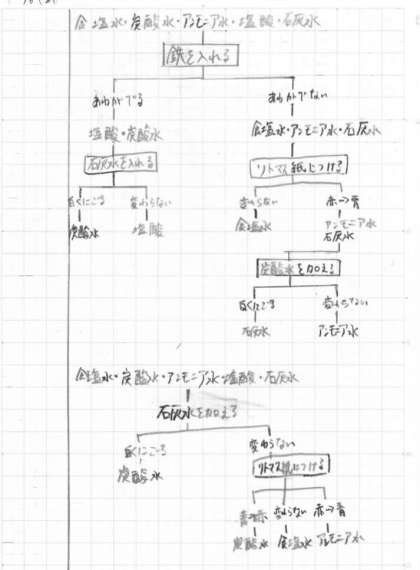 食塩水・炭酸水・アンモニア水・塩酸・石灰水
鉄を入れる
あわがでる
あわがでない
塩酸・炭酸水
食塩水・アンモニア水・石灰水
石灰水を入れる
リトマス紙につける
白くにごる
変わらない
変わらない
赤→青
炭酸水
塩酸
食塩水
アンモニア水
石灰水
炭酸水を加える
白くにごる
変わらない
石灰水
アンモニア水
食塩水・炭酸水・アンモニア水・塩酸・石灰水
石灰水を加える
白くにごる
変わらない
炭酸水
リトマス紙につける
青→赤
変わらない
赤→青
炭酸水
食塩水
アンモニア水